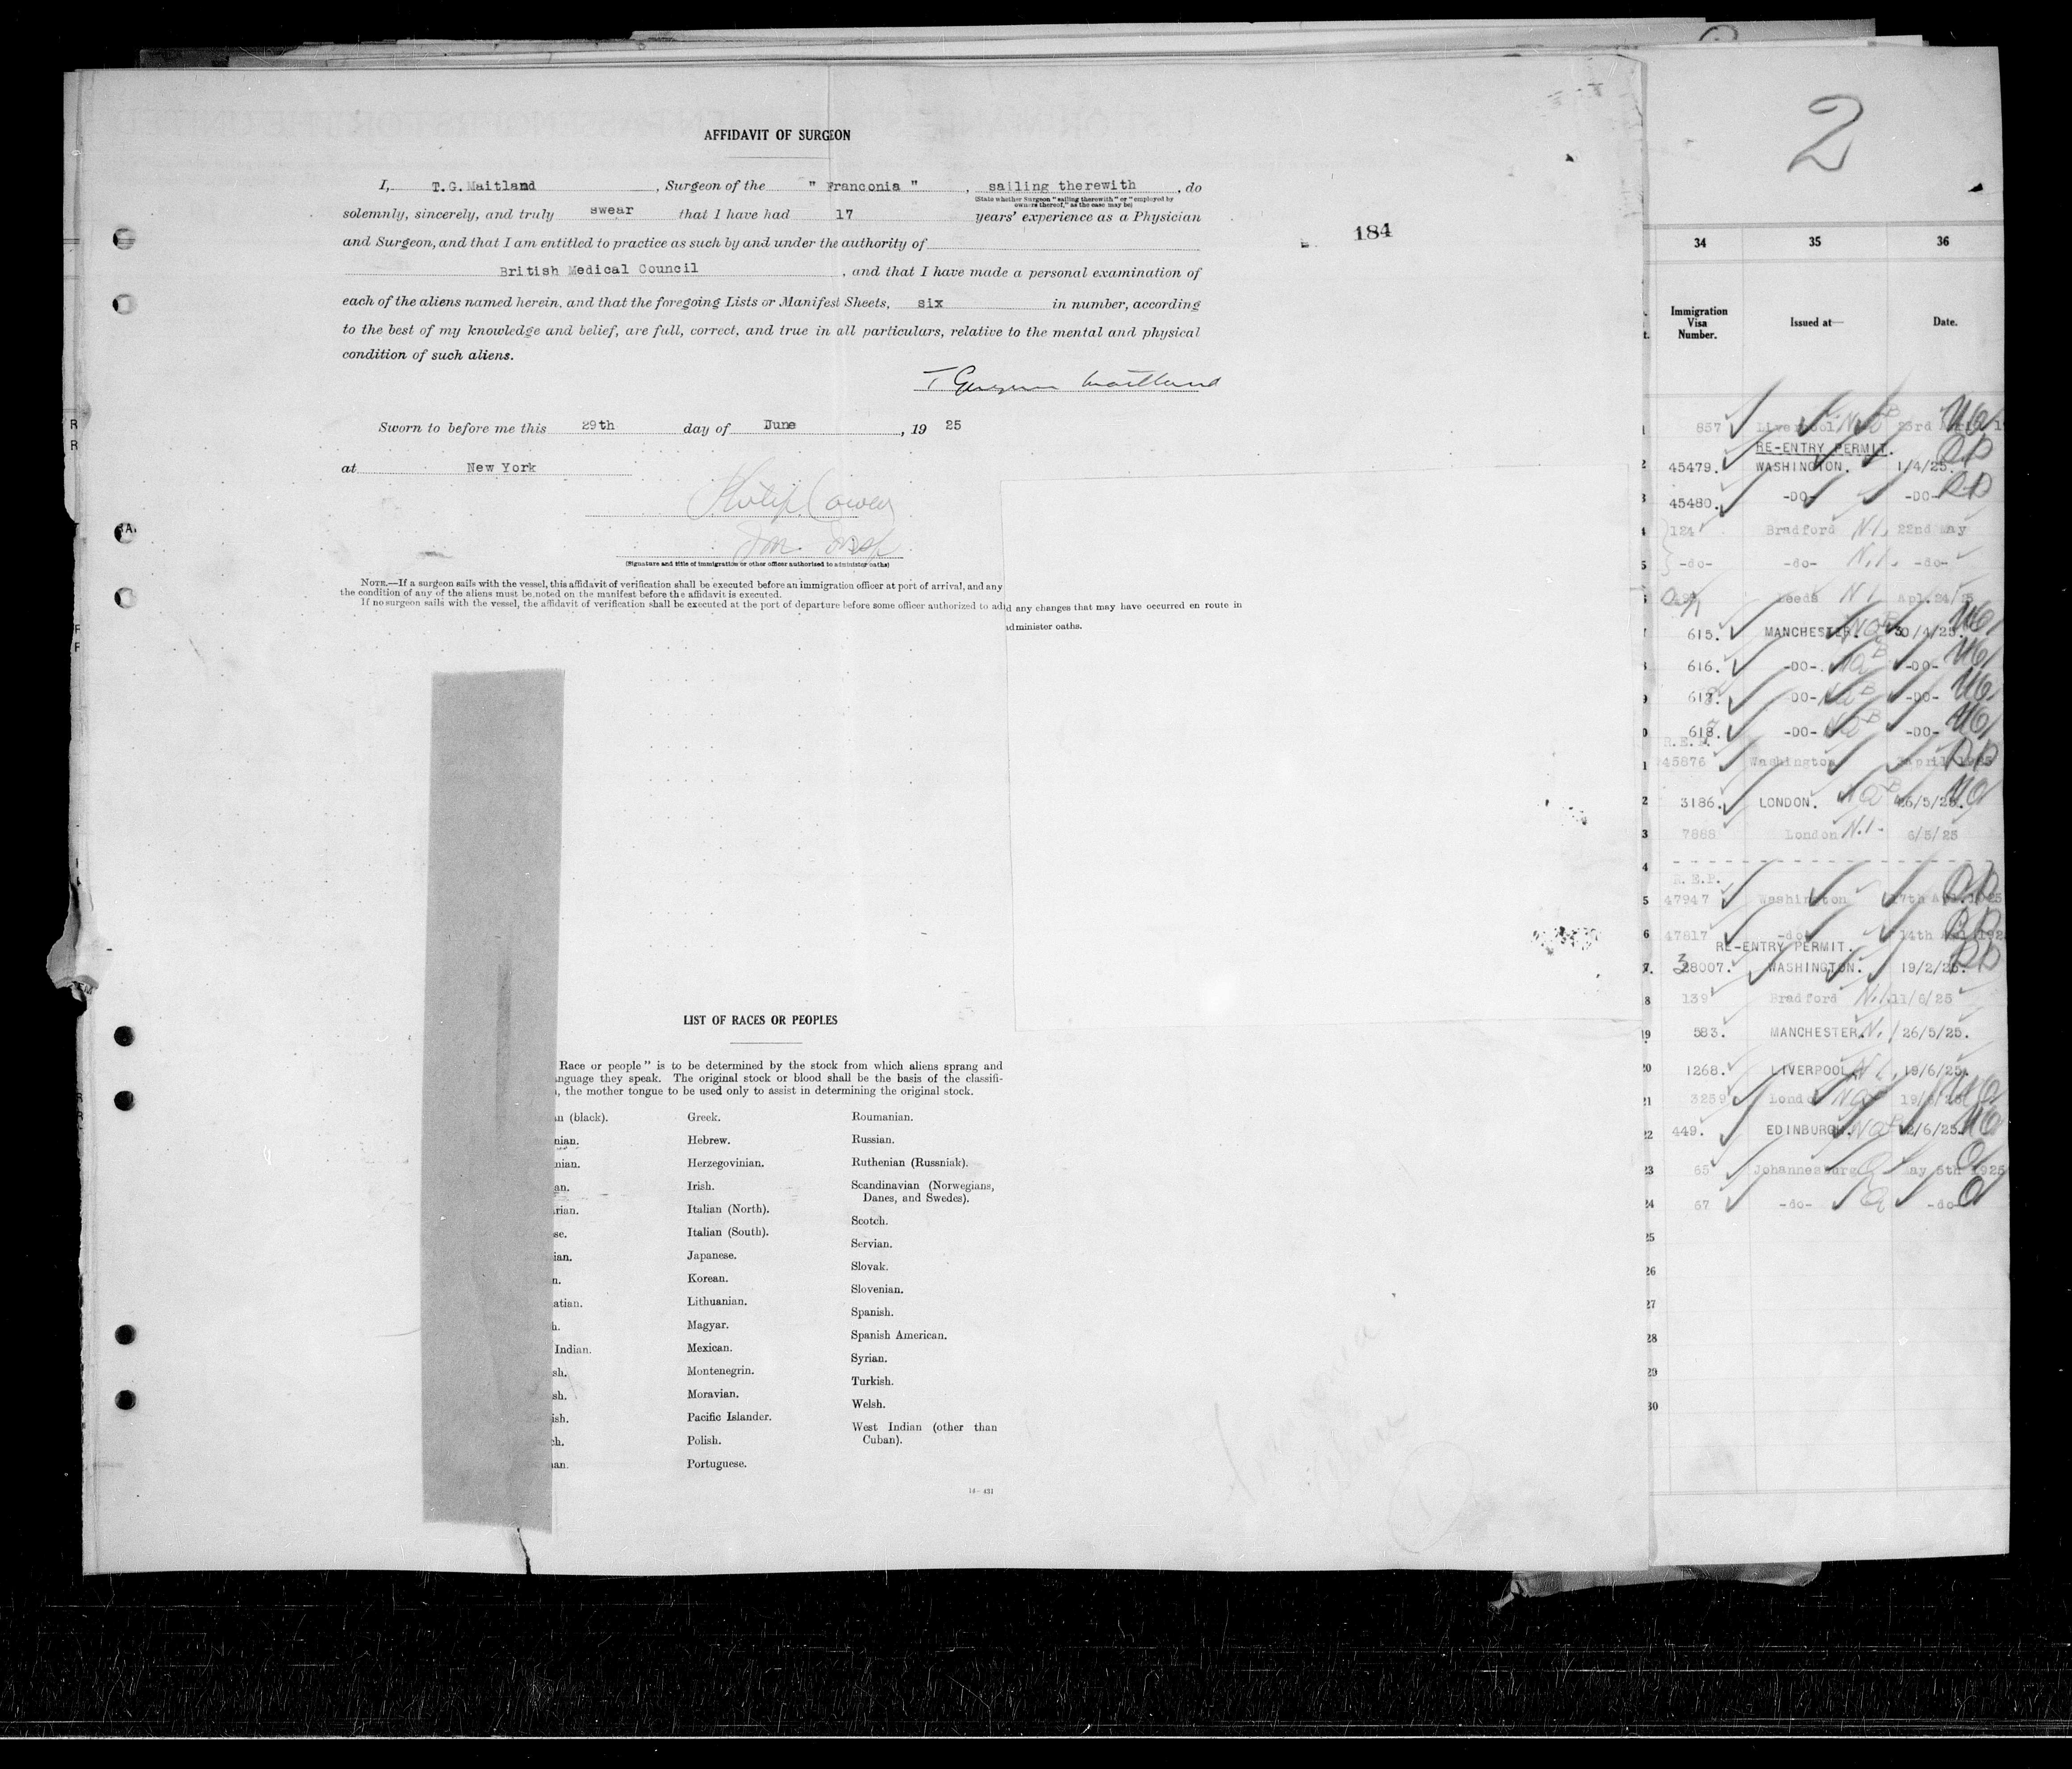 AFFIDAVIT OF SURGEON
I, T.G. Maitland , Surgeon of the " Franconia " , sailing therewith , do
(State whether Surgeon "sailing therewith" or "employed by
owners thereof," as the case may be)
solemnly, sincerely, and truly swear that I have had 17 years' experience as a Physician
and Surgeon, and that I am entitled to practice as such by and under the authority of
British Medical Council , and that I have made a personal examination of
each of the aliens named herein, and that the foregoing Lists or Manifest Sheets, six in number, according
to the best of my knowledge and belief, are full, correct, and true in all particulars, relative to the mental and physical
condition of such aliens.
184
Maitland
Sworn to before me this 29th day of June , 19 25
at New York
Philip Cowen
Im. Insp
(Signature and title of immigration or other officer authorized to administer oaths)
NOTE.—If a surgeon sails with the vessel, this affidavit of verification shall be executed before an immigration officer at port of arrival, and any
the condition of any of the aliens must be noted on the manifest before the affidavit is executed.
If no surgeon sails with the vessel, the affidavit of verification shall be executed at the port of departure before some officer authorized to ad
d any changes that may have occurred en route in
dminister oaths.
LIST OF RACES OR PEOPLES
Race or people" is to be determined by the stock from which aliens sprang and
nguage they speak. The original stock or blood shall be the basis of the classifi-
, the mother tongue to be used only to assist in determining the original stock.
n (black).
nian.
nian.
an.
rian.
se.
ian.
n.
atian.
h.
Indian.
sh.
sh.
ish.
ch.
an.
Greek.
Hebrew.
Herzegovinian.
Irish.
Italian (North).
Italian (South).
Japanese.
Korean.
Lithuanian.
Magyar.
Mexican.
Montenegrin.
Moravian.
Pacific Islander.
Polish.
Portuguese.
Roumanian.
Russian.
Ruthenian (Russniak).
Scandinavian (Norwegians,
Danes, and Swedes).
Scotch.
Servian.
Slovak.
Slovenian.
Spanish.
Spanish American.
Syrian.
Turkish.
Welsh.
West Indian (other than
Cuban).
14—431
2
34 35 36
Immigration
Visa
Number.
Issued at—
Date.
857 Liverpool 23rd
RE-ENTRY PERMIT.
2 45479. WASHINGTON. 1/4/25. RP
3 45480. -DO- -DO- RP
4 124 Bradford N.I. 22nd May
5 -do- -do- N.I. -do-
Leeds N I Apl. 24/25
615. MANCHESTER. 30/4/25.
616. -DO- -DO-
9 -DO- -DO-
-DO- -DO-
R.E.P.
45876 Washington April 1925 RP
2 3186. LONDON. 26/5/25.
3 7888 London N.I. 6/5/25
4
R.E.P.
5 47947 Washington 17th Apl. 1925 RP
6 47817 -do- 14th RP
RE-ENTRY PERMIT.
7. 38007. WASHINGTON. 19/2/25. RP
8 139 Bradford N.I. 11/6/25
19 583. MANCHESTER. N.I 26/5/25.
20 1268. LIVERPOOL N I, 19/6/25.
21 3259 London
22 449. EDINBURGH. 12/6/25.
23 65 Johannesburg May 5th 1925
24 67 -do- -do-
25
26
27
28
29
30